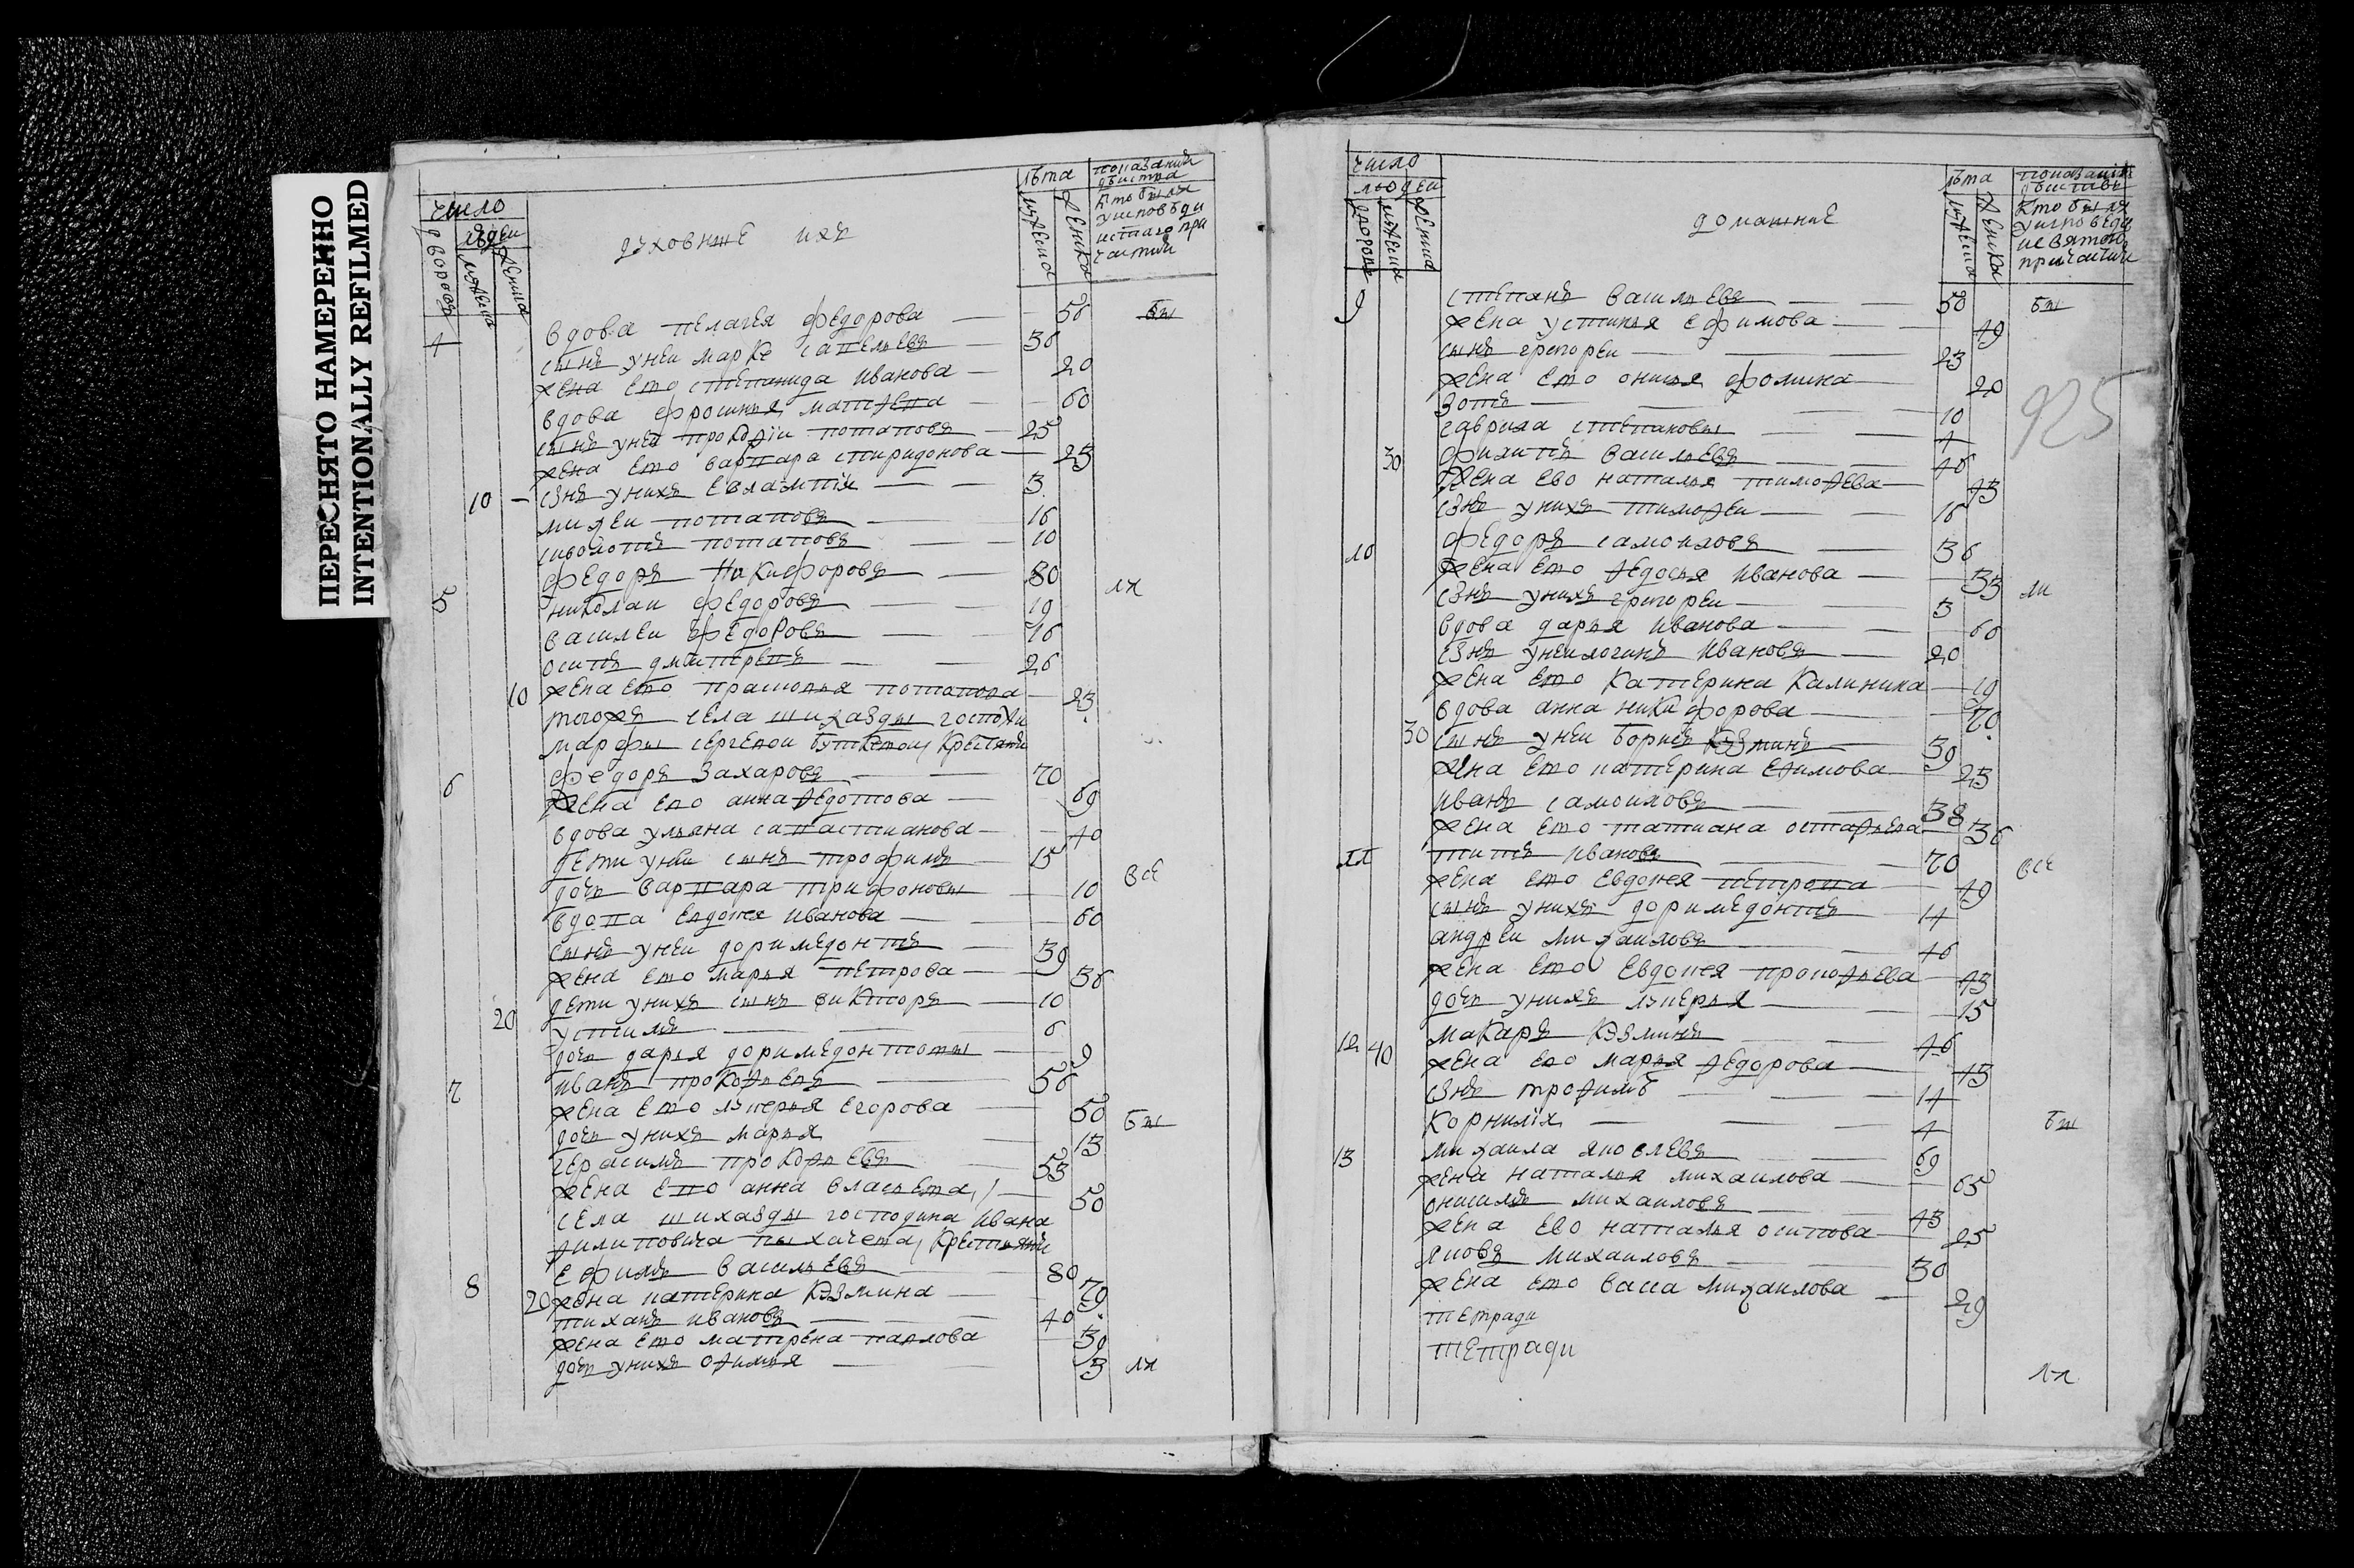 ПЕРЕСНЯТО НАМЕРЕННО
INTENTIONALLY REFILMED
число
людеи
дворовъ
мужеска
женска
духовные ихъ
лѣта
мужеска
женска
показании
кто былъ
у исповѣди
и стаго при
частия
4 вдова пелагея федорова 50 бы
сынъ унеи марке савельевъ 36
жена ево степанида иванова 20
вдова фросинья матвева 60
сынъ унеи прокофiи потаповъ 25
жена ево варвара спиридонова 23
10 сзнъ унихъ евлампiи 3
михеи потаповъ 16
потаповъ 10
5 федоръ никифоровъ 80 ли
николаи федоровъ 19
василеи федоровъ 16
осипъ дмитревъ 26
10 жена ево прасковья потапова 23
тогожъ села шихазды госпожи
марфы сергевои крестьяня
6 федоръ захаровъ 70
жена ево анна федотова 69
вдова ульяна савастианова 40
дети унеи сынъ трофимъ 15
дочь варвара трифоновы 10 все
вдова евдокея иванова 60
сынъ унеи доримедонтъ 39
жена ево марья петрова 36
дети унихъ сынъ виктаръ 10
20 устимъ 6
дочь дарья доримедонтовы 9
7 иванъ прокофьевъ 56
жена ево лукерья егорова 50
дочь унихъ марья 13 бы
герасимъ прокофьевъ 53
жена ево анна власьева 50
села шихазды господина ивана
филиповича пыхачева крестьяня
8 ефимъ васильевъ 80
20 жена катерина кузмина 79
тиханъ ивановъ 40
жена ево матрена павлова 39
дочь унихъ офимья 3 ли
число
людеи
дворовъ
мужеска
женска
домашние
лѣта
мужеска
женска
показании
кто былъ
у исповеди
и святого
причастия
9 степанъ васильевъ 50 бы
жена устинья ефимова 49
сынъ григореи 23
жена ево онисья фомина 20
зотъ 10
гаврила степановы 4
30 филипъ васильевъ 46
жена ево наталья тимофева 43
сзнъ унихъ тимофеи 16
10 федоръ самоиловъ 36
жена ево федосья иванова 33 ли
сзнъ унихъ григореи 3
вдова дарья иванова 60
сзнъ унеи логинъ ивановъ 20
жена ево катерина калинина 19
вдова анна никифорова 70
30 сынъ унеи борисъ кузминъ 30
жена ево катерина ефимова 23
иванъ самоиловъ 38
жена ево татиана остафьева 36
11 титъ ивановъ 70 все
жена ево евдокея петрова 49
сынъ унихъ доримедонтъ 14
андреи михаиловъ 46
жена ево евдокея прокофьева 43
дочь унихъ лукерья 15
12 40 макаръ кузминъ 46
жена ево марья федорова 43
сзнъ трофимъ 14
корнилiя 4 бы
13 михаила яковлевъ 69
жена наталья михаилова 65
онисимъ михаиловъ 43
жена ево наталья осипова 25
яковъ михаиловъ 30
жена ево васса михаилова 29
тетради
тетради
ли
925